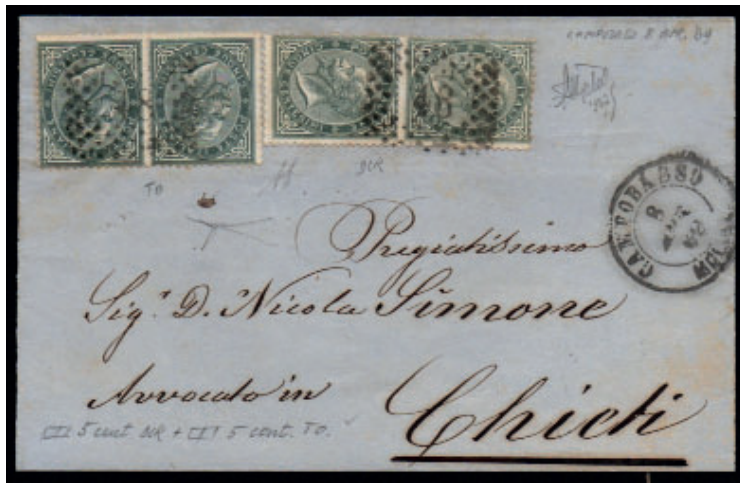 CAMPOBASSO 8 APR. 69
TO
DLR
CAMPOBASSO
8
APR
69
MOL
Pregiatissimo
Sig.r D. Nicola Simone
Avvocato in
Chieti
5 cent. DLR + 5 cent. TO.